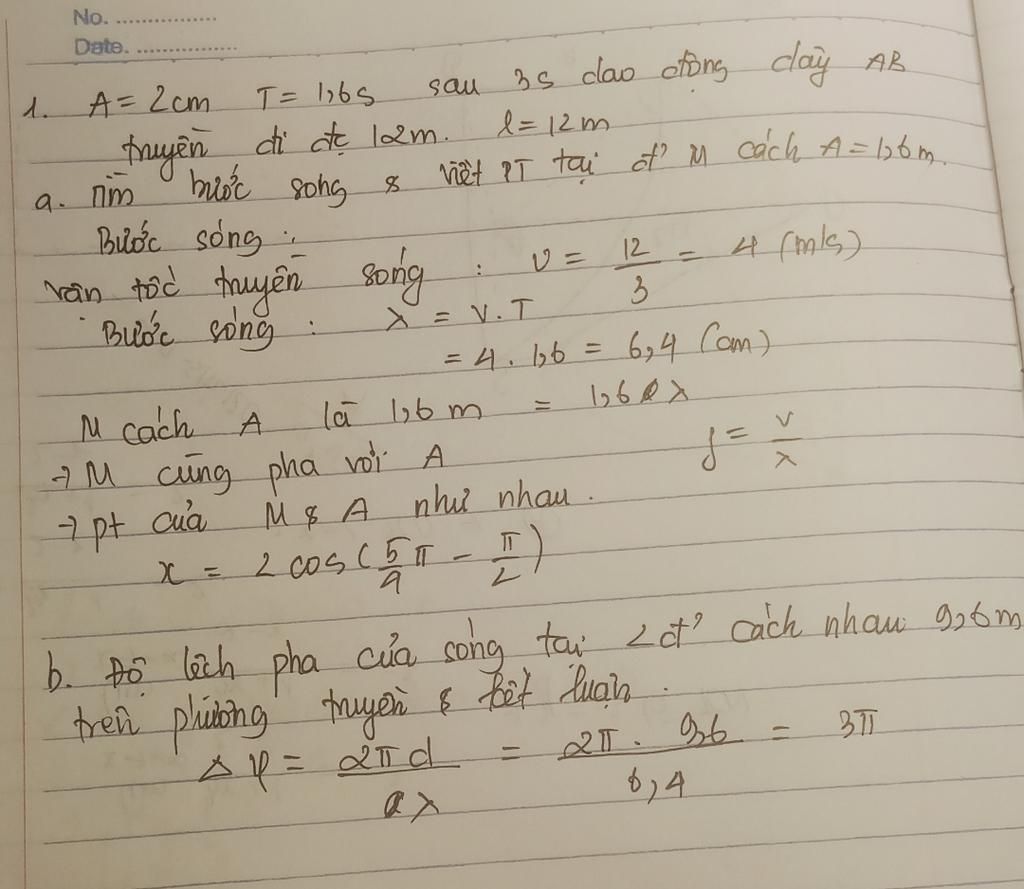 No. ....................
Date. ....................
1. A = 2cm T = 1,6s sau 3s dao động dây AB
truyền đi đc 12m. l = 12m
a. Tìm bước sóng & viết PT tại đ' M cách A = 1,6m.
Bước sóng :
vận tốc truyền sóng : v = 12/3 = 4 (m/s)
Bước sóng : λ = v.T
= 4 . 1,6 = 6,4 (cm)
M cách A là 1,6 m = 1,6 λ
→ M cùng pha với A f = v/λ
→ pt của M & A như nhau.
x = 2 cos (5/4 π - π/2)
b. Độ lệch pha của sóng tại 2 đ' cách nhau 9,6m
trên phương truyền & kết luận.
Δφ = 2πd/λ = 2π . 9,6/6,4 = 3π